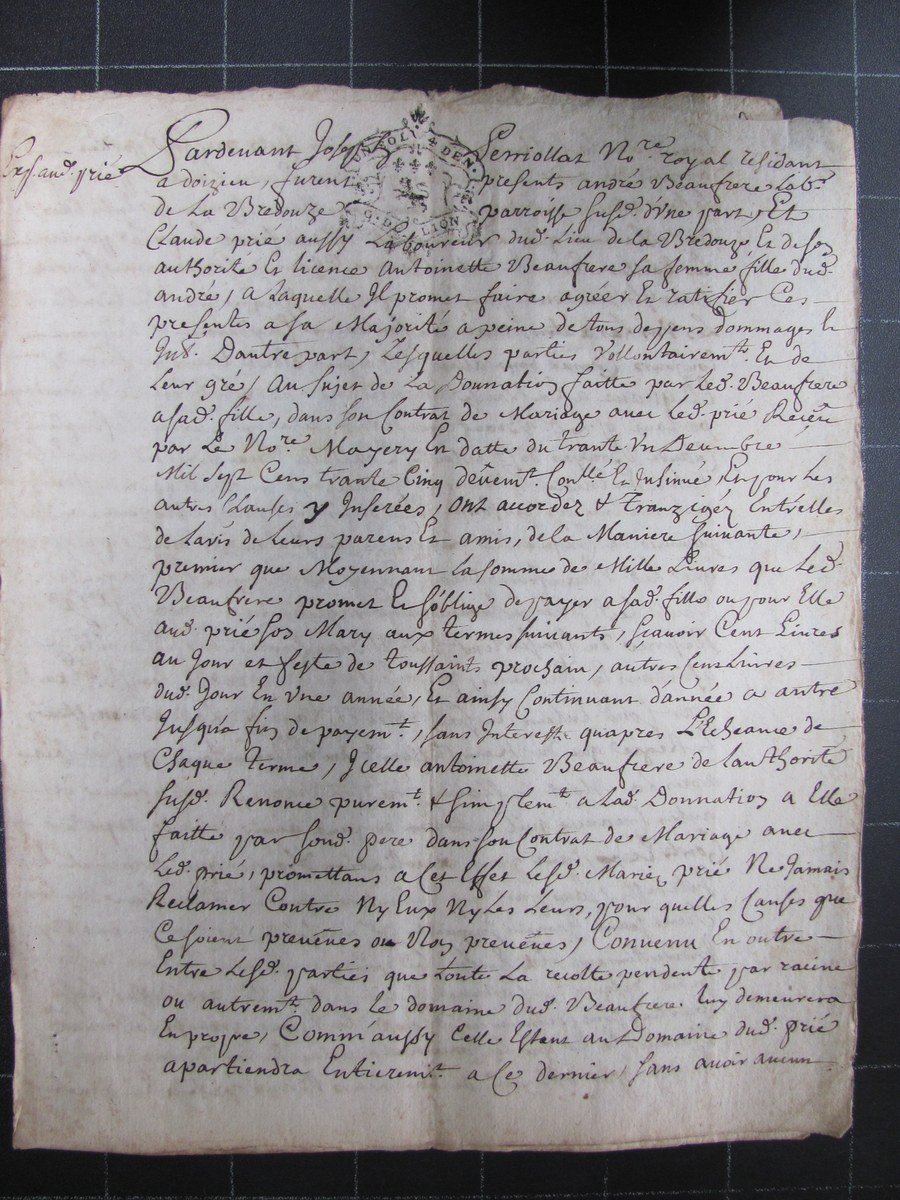 Pardevant Joseph Perriollat No.re royal residant
Exp. aud. prié
a doizieu, furent presents andré Beaufrere Lab.r
de La Bredouze parroisse susd. d'Vne part, Et
Claude prié aussy Laboureur dud. Lieu de la Bredouze Et de son
authorité Et licence Antoinette Beaufrere sa femme fille dud.
andré, a Laquelle Il promet faire agréer Et ratifier Ces
presentes a sa Majorité a peine de tous despens dommages Et
Int. Dautre part, Lesquelles parties Vollontairem.t Et de
Leur gré, Au sujet de La Donnation faitte par Led. Beaufrere
a sad. fille, dans son Contrat de Mariage avec Led. prié Receu
par Le No.re Mayery En datte du trante Vn Decembre
Mil Sept Cens trante Cinq deüem.t Con.llé Et Insinué, Et pour Les
autres Clauses y Inserées, ont accordez & Tranzigéz Entr'elles
de Lavis de Leurs parens Et amis, de la Maniere suivante,
premier que Moyennant La somme de Mille Livres que Led.
Beaufrere promet Et s'oblige de payer a sad. fille ou pour Elle
aud. prié son Mary aux termes suivants, sçavoir Cent Livres
au Jour et feste de toussaints prochain, autres Cens Livres
dud. Jour En Vne année, Et ainsy Continuant d'année a autre
Jusqu'a fin de payem.t, sans Interest qu'apres L'Echeance de
Chaque terme, Icelle antoinette Beaufrere de Lauthorité
susd. Renonce purem.t & simplem.t a Lad. Donnation a Elle
faitte par sond. pere dans son Contrat de Mariage avec
Led. prié, promettans a Cet Effet Lesd. Mariez prié Ne Jamais
Reclamer Contre Ny Eux Ny Les Leurs, pour quelles Causes que
Ce soient preveües ou Non preveües, Convenu En outre
Entre Lesd. parties que toute La recolte pendente par racine
ou autrem.t dans le domaine dud. Beaufrere luy demeurera
En propre, Comm'aussy Celle Estant au Domaine dud. prié
apartiendra Entierem.t a Ce dernier, sans avoir aucun